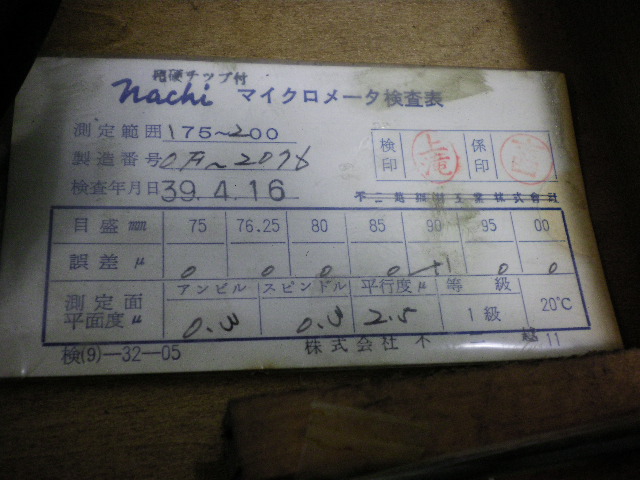 超硬チップ付
nachi マイクロメータ検査表
測定範囲 175~200
検印 上滝 係印
製造番号
検査年月日 39.4.16
目盛 mm 75 76.25 80 85 90 95 00
誤差 μ 0 0 0 0 +1 0 0
測定面平面度 μ アンビル 0.3 スピンドル 0.3 平行度μ 2.5 等級 1級 20℃
検(9)—32—05 株式会社不二越 11